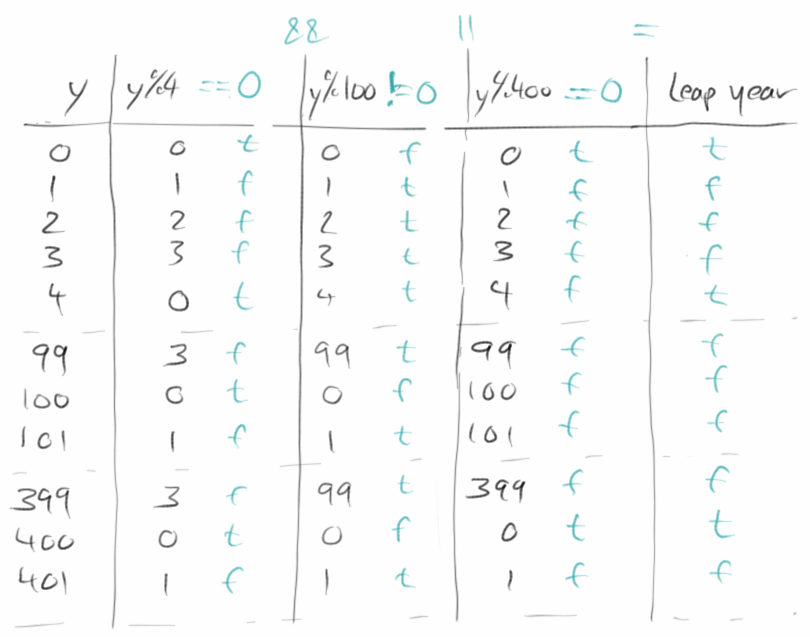 && || =
y y%4 ==0 y%100 !=0 y%400 ==0 leap year
0 0 t 0 f 0 t t
1 1 f 1 t 1 f f
2 2 f 2 t 2 f f
3 3 f 3 t 3 f f
4 0 t 4 t 4 f t
99 3 f 99 t 99 f f
100 0 t 0 f 100 f f
101 1 f 1 t 101 f f
399 3 f 99 t 399 f f
400 0 t 0 f 0 t t
401 1 f 1 t 1 f f